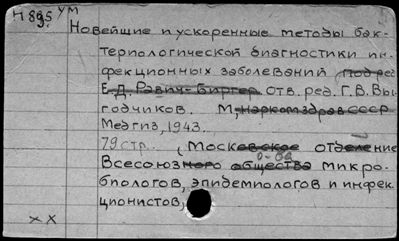 Н 895. УМ
Новейшие и ускоренные методы бак-
териологической диагностики ин-
фекционных заболеваний под ред
Е.Д. Равич-Биргер отв. ред. Г.В. Вы-
годчиков. М, наркомздрав СССР
Медгиз, 1943.
79 стр. (Московское отделение
о-ва
Всесоюзного общества микро-
биологов, эпидемиологов и инфек-
ционистов)
х х